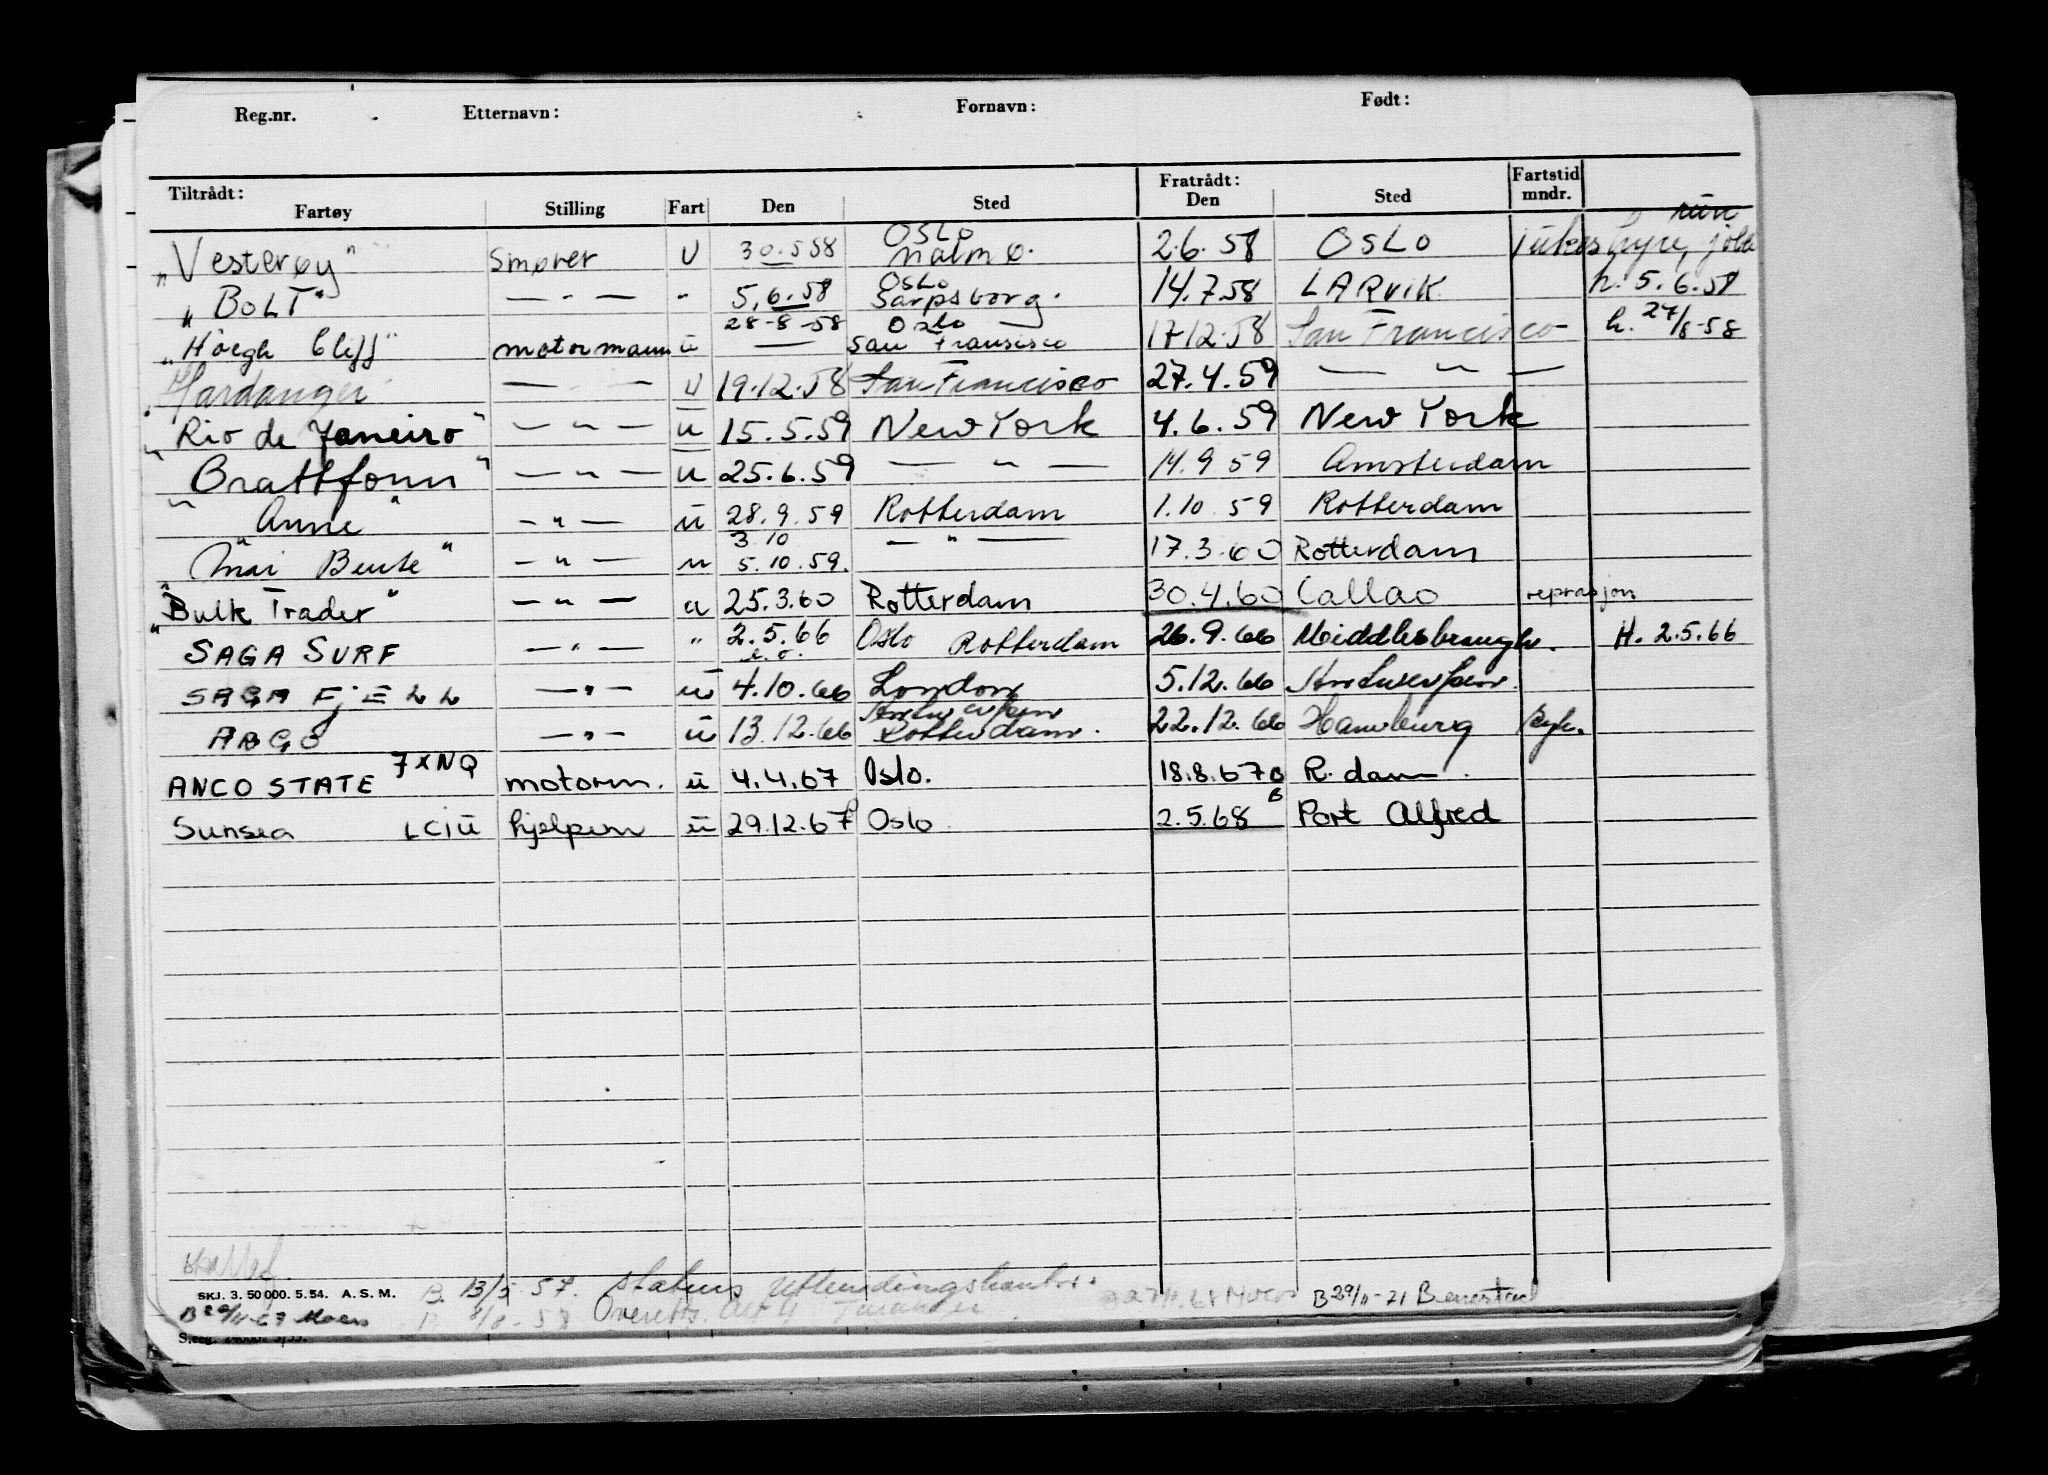 Reg.nr. Etternavn: Fornavn: Født:
Tiltrådt: Fratrådt: Fartstid
Fartøy Stilling Fart Den Sted Den Sted mndr.
run
Oslo
"Vesterøy" Smører U 30.5.58 Malmø. 2.6.58 OSLO hyre, jobb
Oslo
"BOLT" — " — " 5.6.58 Sarpsborg. 14.7.58 LARVIK h. 5.6.58
28-8-58 Oslo
"Høegh Cliff" motormann ü — San Fransisco 17-12-58 San Francisco h. 27/8-58
Hardanger — " — U 19.12.58 San Francisco 27.4.59 — " —
"Rio de Janeiro" — " — ü 15.5.59 New York 4.6.59 New York
"Brattfonn" — " — ü 25.6.59 — " — 14.9.59 Amsterdam
"Anne" — " — ü 28.9.59 Rotterdam 1.10.59 Rotterdam
3.10
"Mai Bente" — " — u 5.10.59. — " — 17.3.60 Rotterdam
"Bulk Trader" — " — u 25.3.60 Rotterdam 30.4.60 Callao reprasjon
SAGA SURF — " — " 2.5.66 Oslo Rotterdam 26.9.66 Middlesbrough. H. 2.5.66
e.o.
SAGA FJELL — " — ü 4.10.66 London 5.12.66 Antwerpen.
Antwerpen
ABGO — " — ü 13.12.66 Rotterdam. 22.12.66 Hamburg Syk.
ANCO STATE 7XNQ motorm. ü 4.4.67 Oslo. 18.8.67 B R.dam.
Sunsea LCIU hjelpem ü 29.12.67 Oslo 2.5.68 B Port Alfred
SKJ. 3. 50 000. 5. 54. A. S. M. B. 13/5-57. Statens Utlendingskontor.
Moen Overetts. B 29/11-71 Benestad